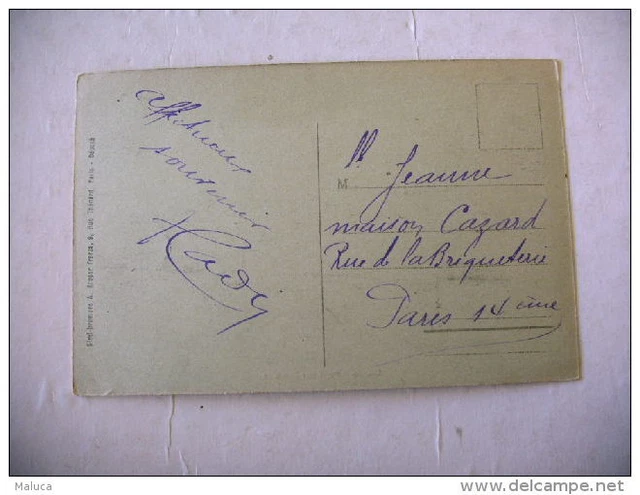 affectueux
souvenir
M. Jeanne
maison Cazard
Rue de la Briqueterie
Paris 14ème
Maluca
delcampe.net